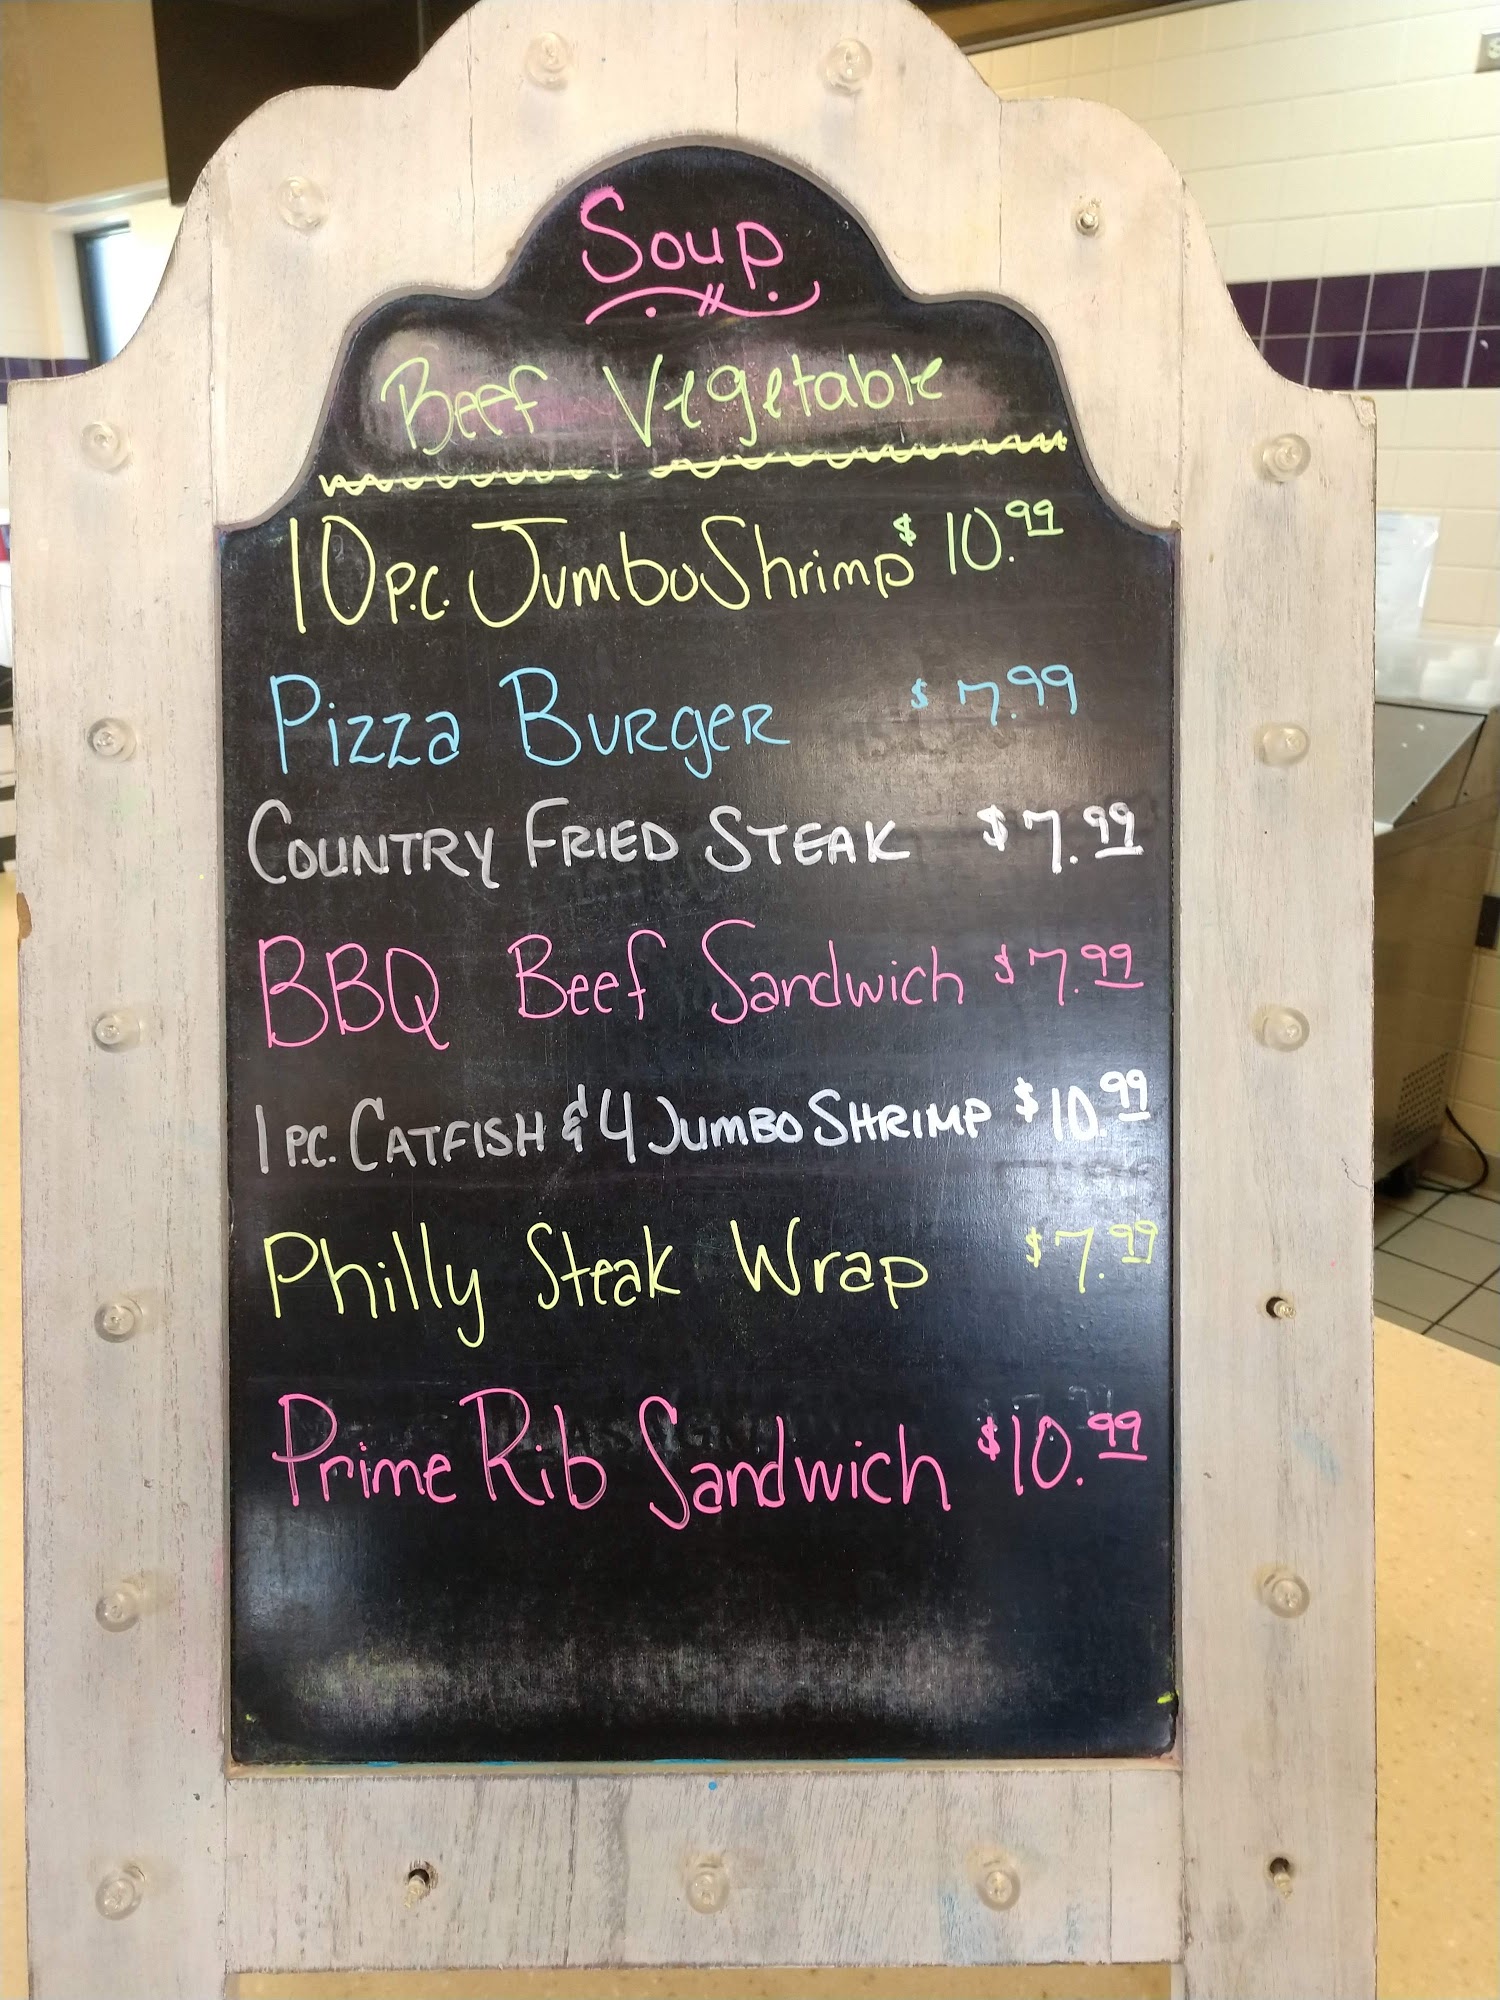 Soup
Beef Vegetable
10 p.c. Jumbo Shrimp $10.99
Pizza Burger $7.99
COUNTRY FRIED STEAK $7.99
BBQ Beef Sandwich $7.99
1 P.C. CATFISH & 4 JUMBO SHRIMP $10.99
Philly Steak Wrap $7.99
Prime Rib Sandwich $10.99